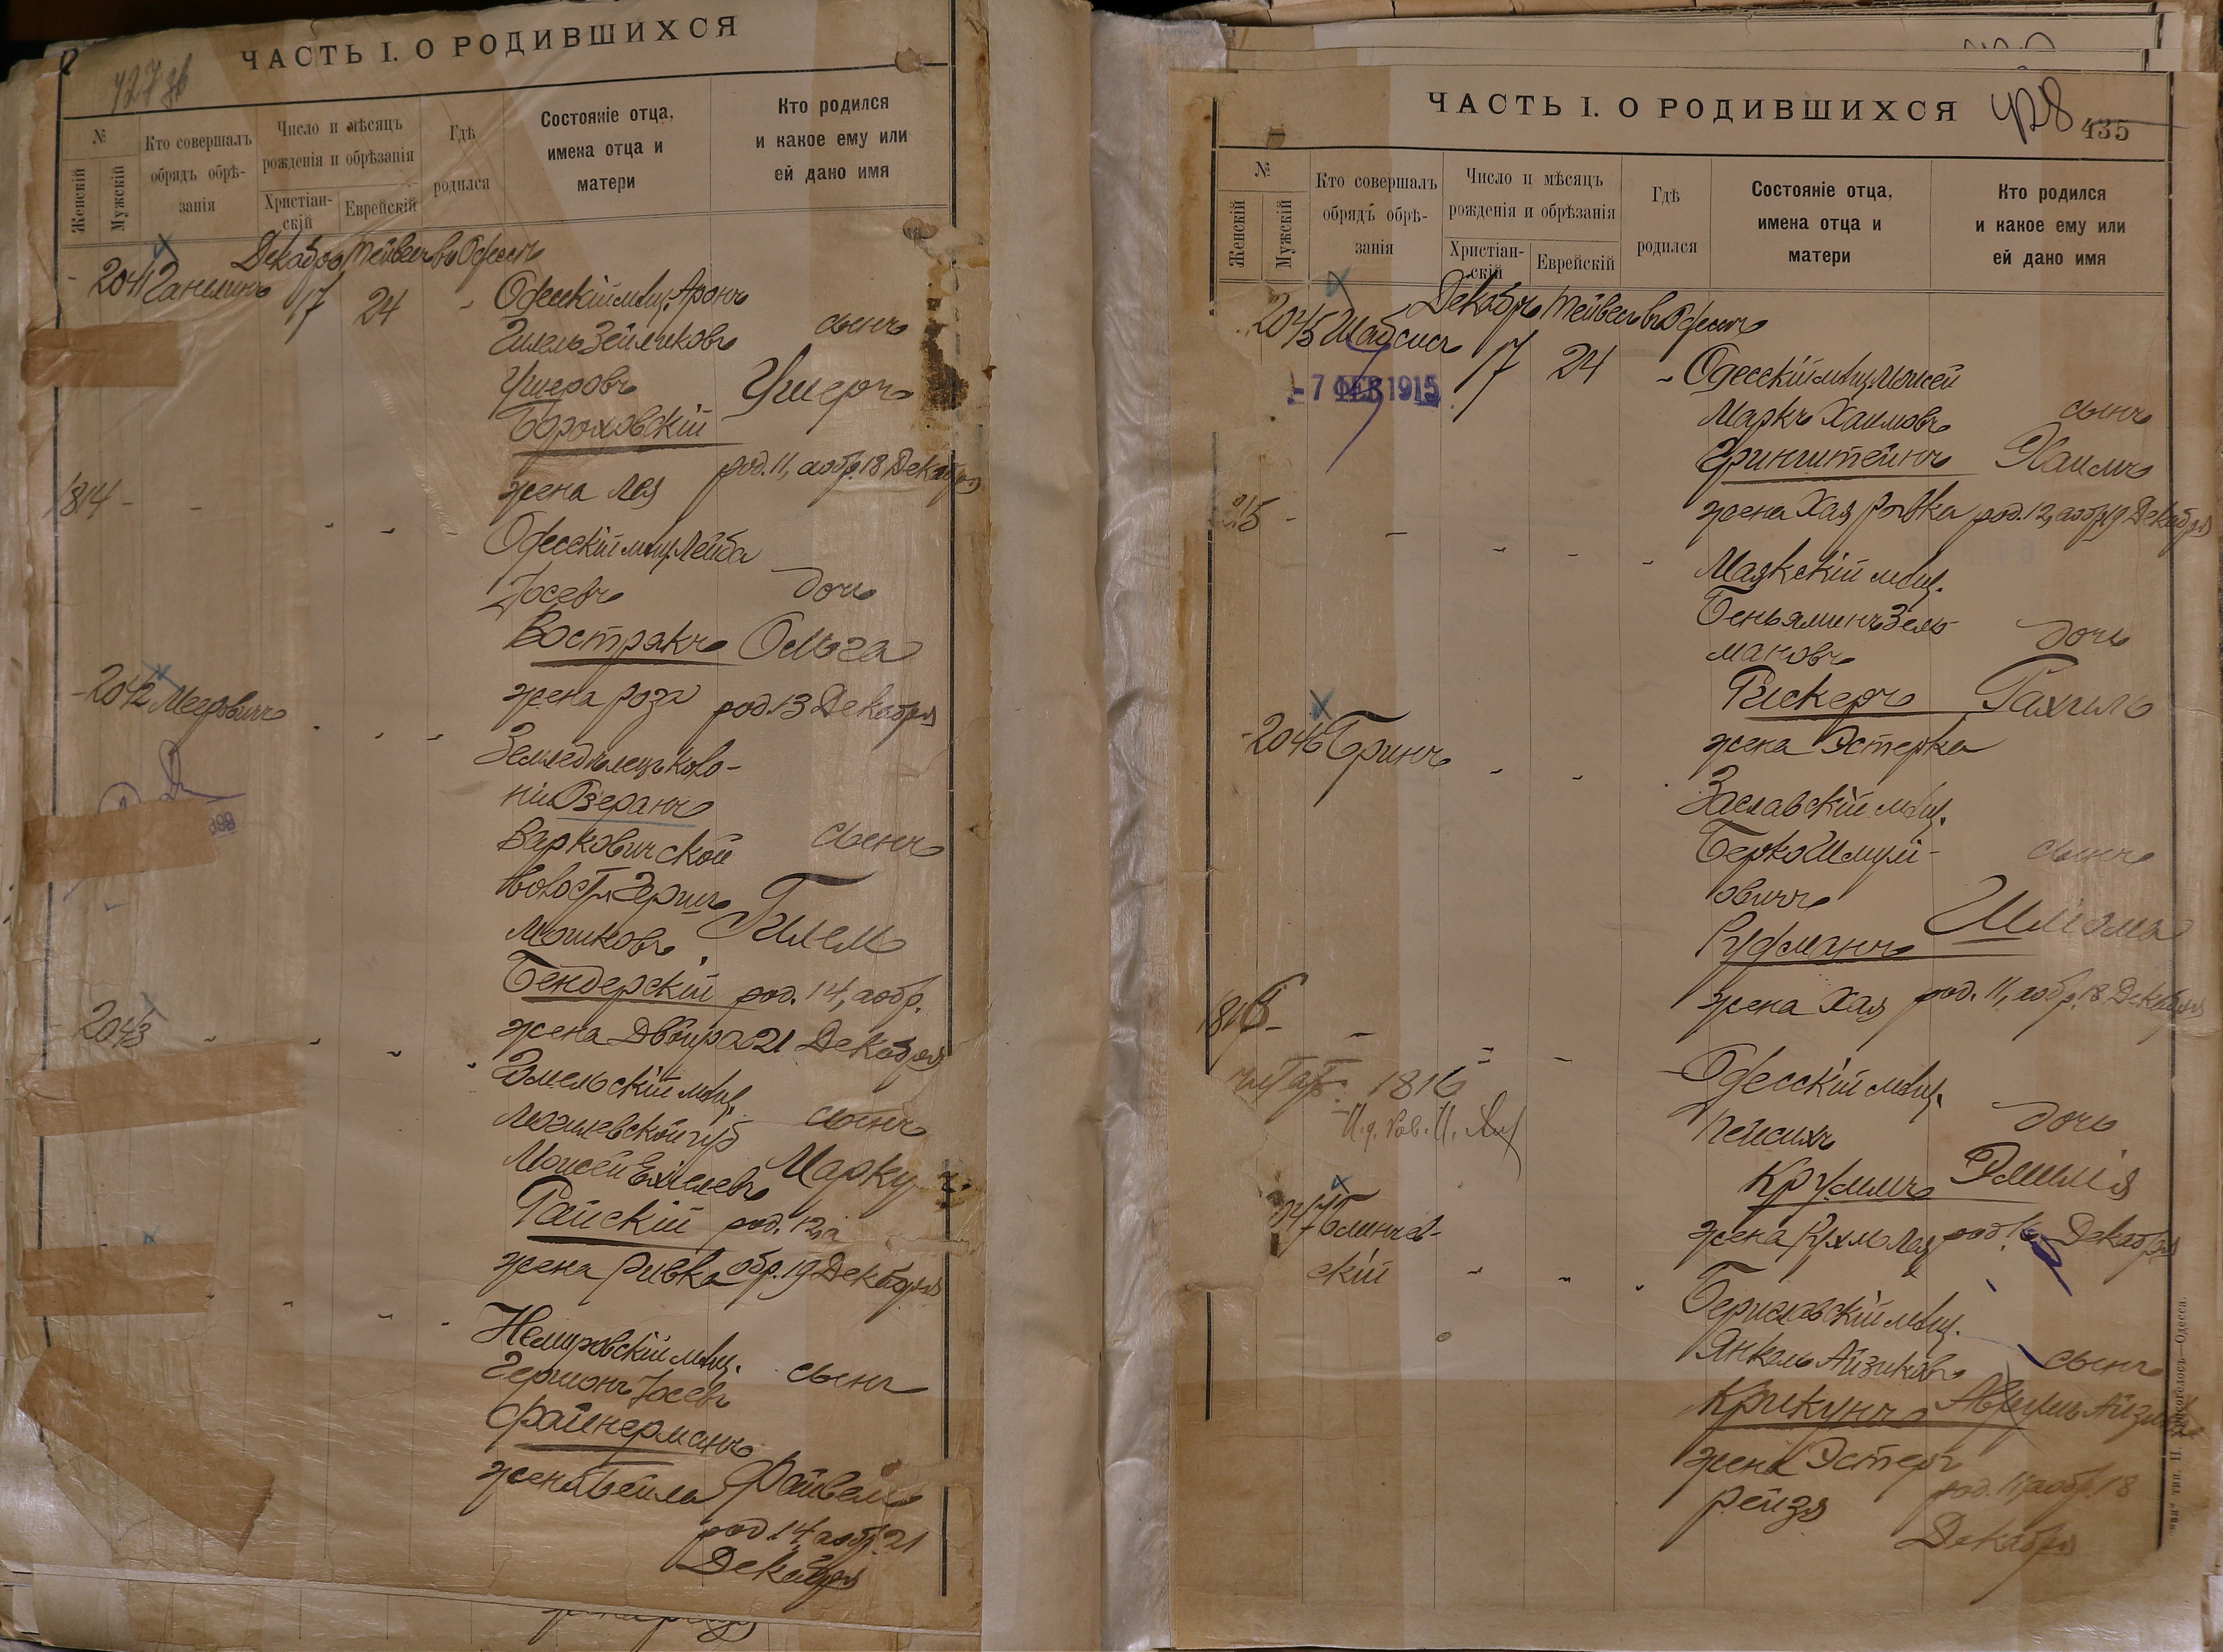 ЧАСТЬ I. О РОДИВШИХСЯ
№
Женскій
Мужскій
Кто совершалъ
обрядъ обрѣ-
занія
Число и мѣсяцъ
рожденія и обрѣзанія
Христіан-
скій
Еврейскій
Гдѣ
родился
Состояніе отца,
имена отца и
матери
Кто родился
и какое ему или
ей дано имя
Декабрь Тейвесъ въ Одессѣ
2041
17 24
Одесскій мѣщ. Аронъ
сынъ
Ушеровъ
Ушеръ
Бороховскій
жена Лея
род. 11, а обр. 18 Декабря
1814 -
Одесскій мѣщ. Лейба
Іосевъ
дочь
Вострякъ
Ольга
жена Роза
род. 13 Декабря
2042 Мееровичъ
Земледѣлецъ коло-
ніи Озеранъ
Варковичской
сынъ
волост. Герш
Мошковъ
Бендерскій
род. 14, а обр.
жена Двойра
21 Декабря
2043
мѣщ.
Могилевской губ
сынъ
Моисей Ехіелевъ
Марку
Райскій
род. 12, а
жена Ривка
обр. 19 Декабря
Немировскій мѣщ.
Гершонъ Іосевъ
сынъ
Файнерманъ
жена Бейла
Файвель
род 14, а обр. 21
Декабря
ЧАСТЬ I. О РОДИВШИХСЯ
428
435
№
Женскій
Мужскій
Кто совершалъ
обрядъ обрѣ-
занія
Число и мѣсяцъ
рожденія и обрѣзанія
Христіан-
скій
Еврейскій
Гдѣ
родился
Состояніе отца,
имена отца и
матери
Кто родился
и какое ему или
ей дано имя
Декабрь Тейвесъ въ Одессѣ
2045 Шабсисъ
17 24
-7 ФЕВ 1915
Одесскій мѣщ. Моисей
Маркъ Хаимовъ
сынъ
Гринштейнъ
Хаимъ
жена Хая Ривка
род. 12, а обр 19 Декабря
15 -
Маякскій мѣщ.
Беньяминъ Зель
мановъ
дочь
Рискеръ
Рахиль
жена Эстерка
2046 Гринъ
Заславскій мѣщ.
Берко Шмуй-
овичъ
сынъ
Руфманъ
Шліома
жена Хая
род. 11, а обр. 18 Декабря
1816 -
читать: 1816
Одесскій мѣщ.
Пейсихъ
дочь
Эмилія
жена Рухль Лея
род. 16 Декабря
скій
Бериславскій мѣщ.
Янкель Айзиковъ
сынъ
Крикунъ
жена Эстеръ
Рейзя
род. 11, а обр. 18
Декабря
тип. И. Хрисогелосъ—Одесса.